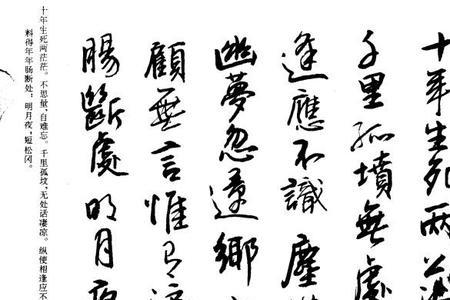 十年生死两
千里孤墳無處
逢應不識塵
幽夢忽還鄉
顧無言惟有
腸斷處明月夜
十年生死两茫茫。不思量、自难忘。千里孤坟、无处话凄凉。纵使相逢应不
料得年年肠断处：明月夜，短松冈。